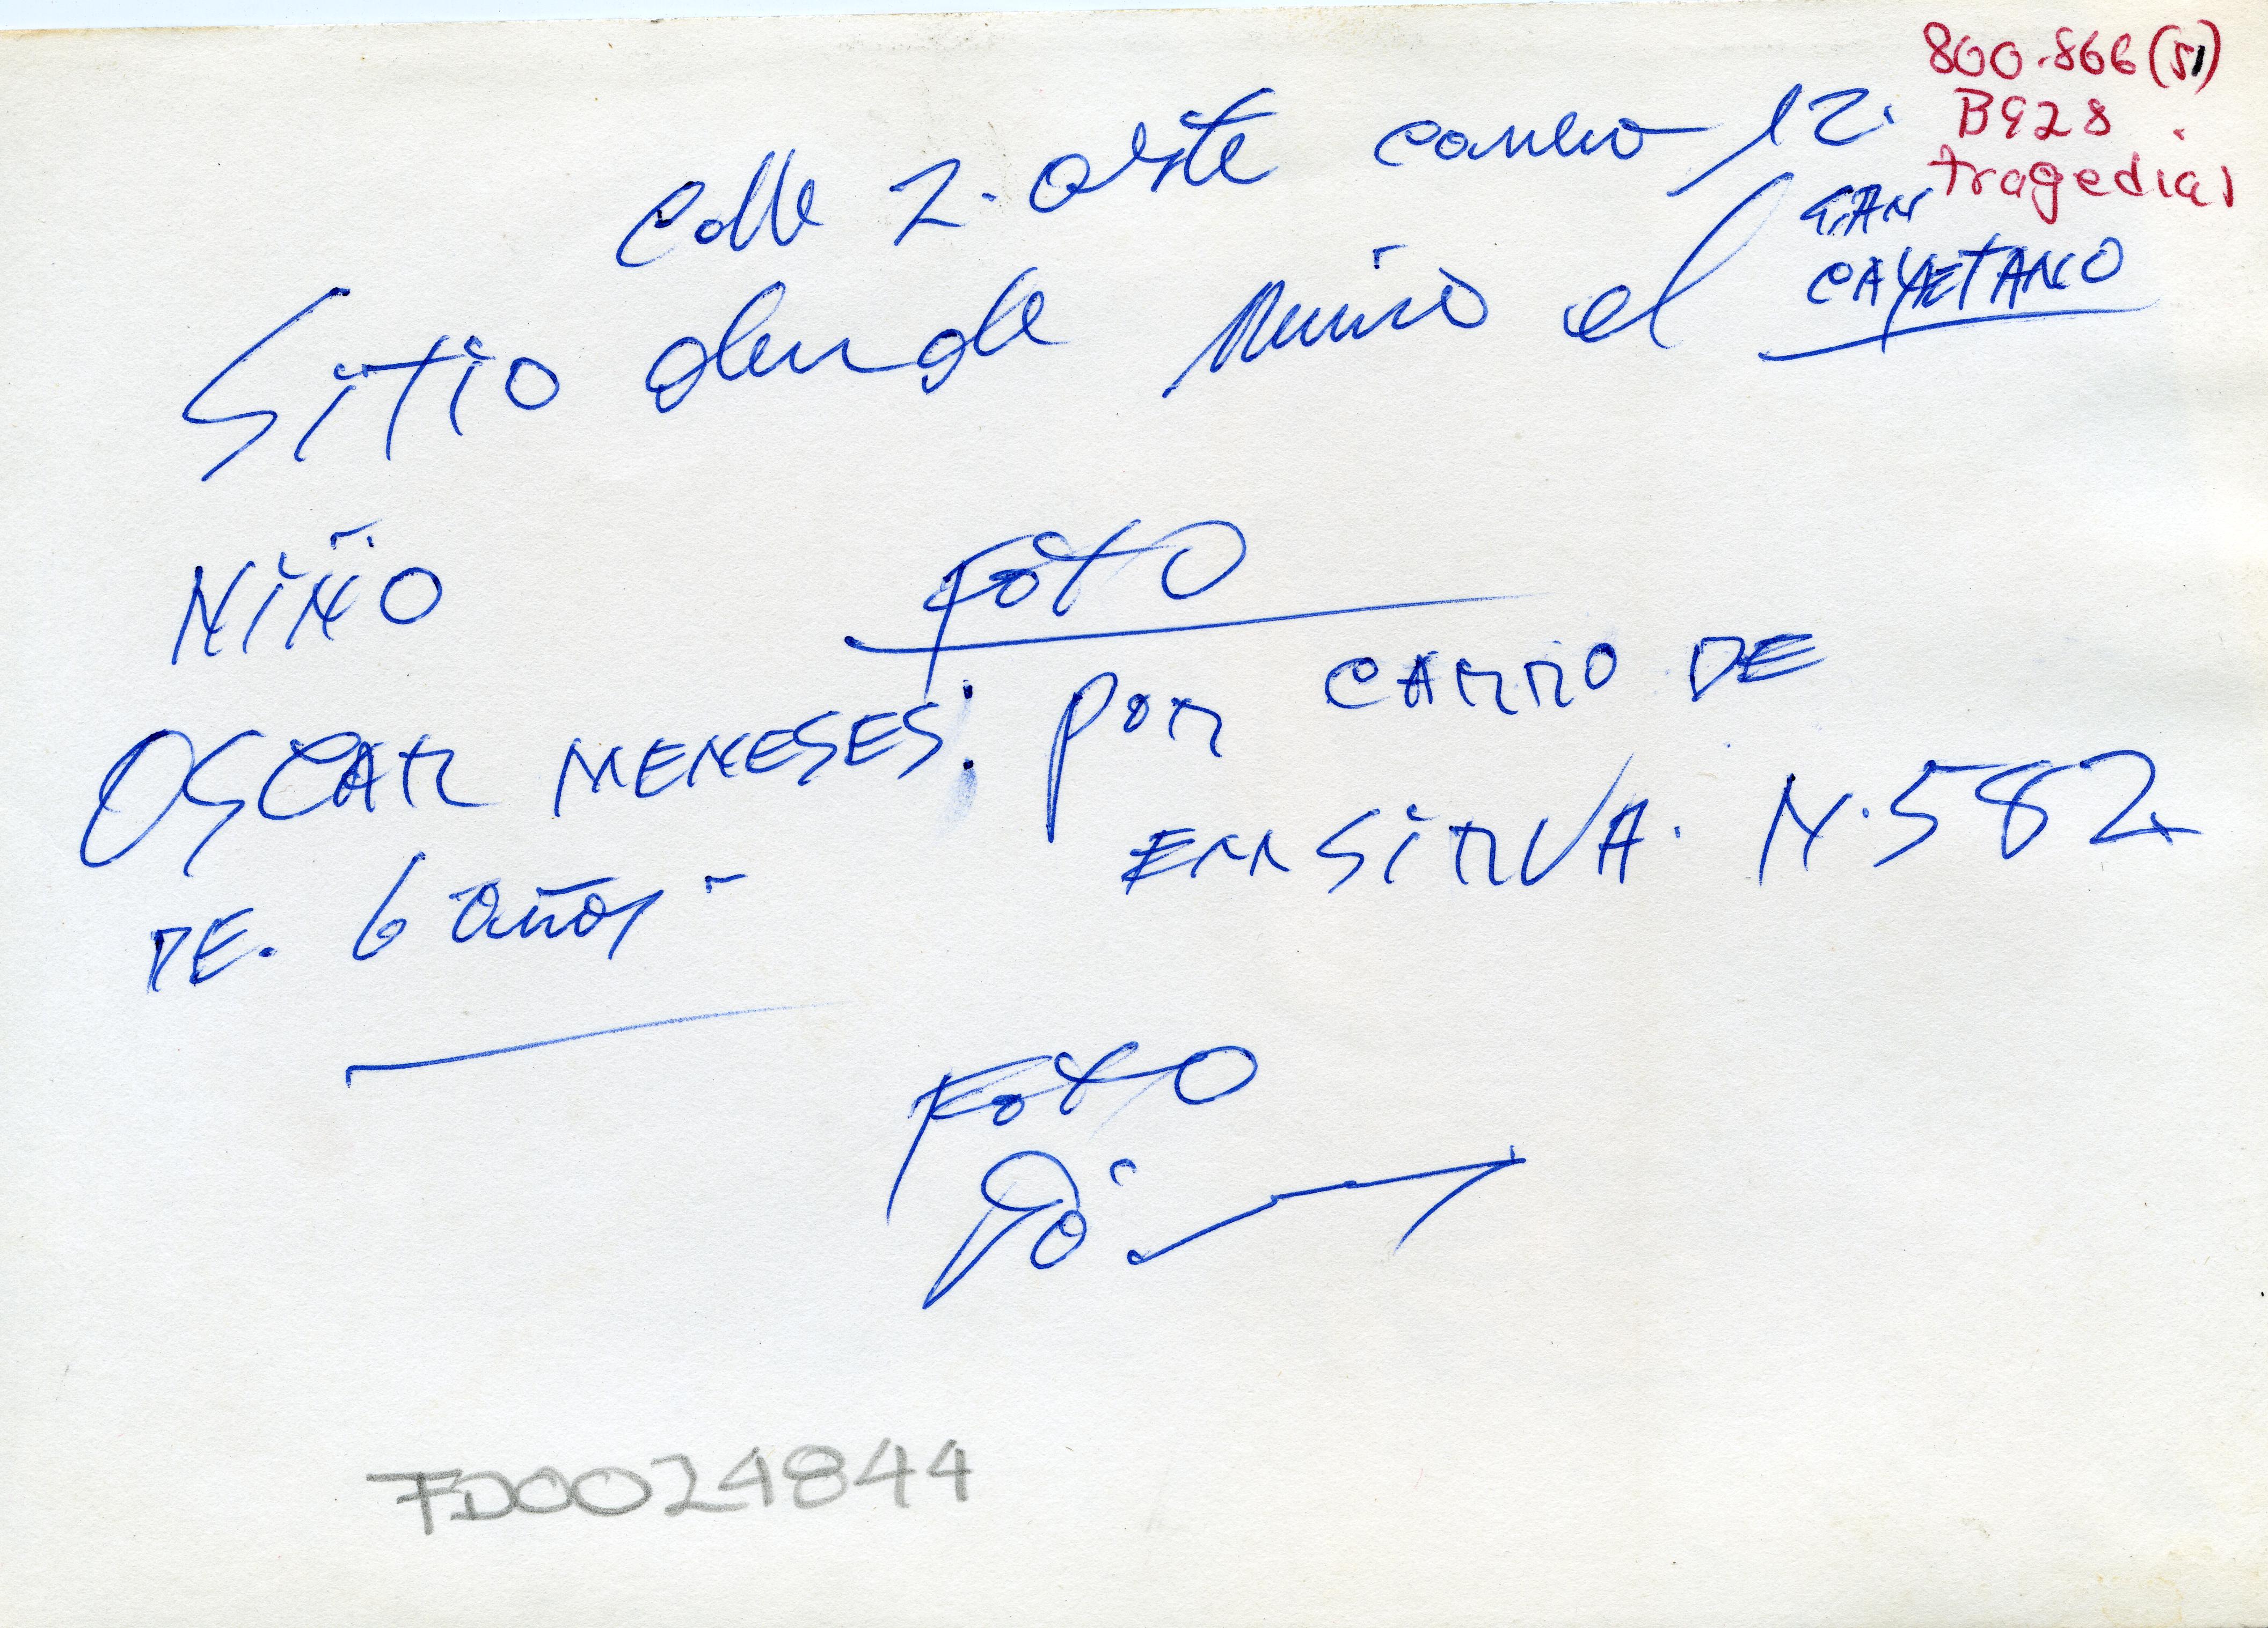 800.866(51)
B928
tragedias
Calle 2. oeste carrera 12.
SAN
CAYETANO
Sitio donde murió el
NIÑO
FOTO
OSCAR MENESES: por CARRO DE
EMSIRVA. N.582
DE. 6 años
FOTO
FD0024844